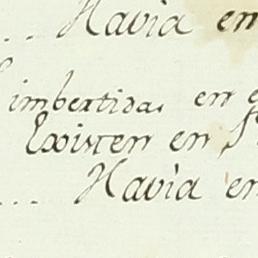 ... Havia en
imbertidas en
Existen en
... Havia en